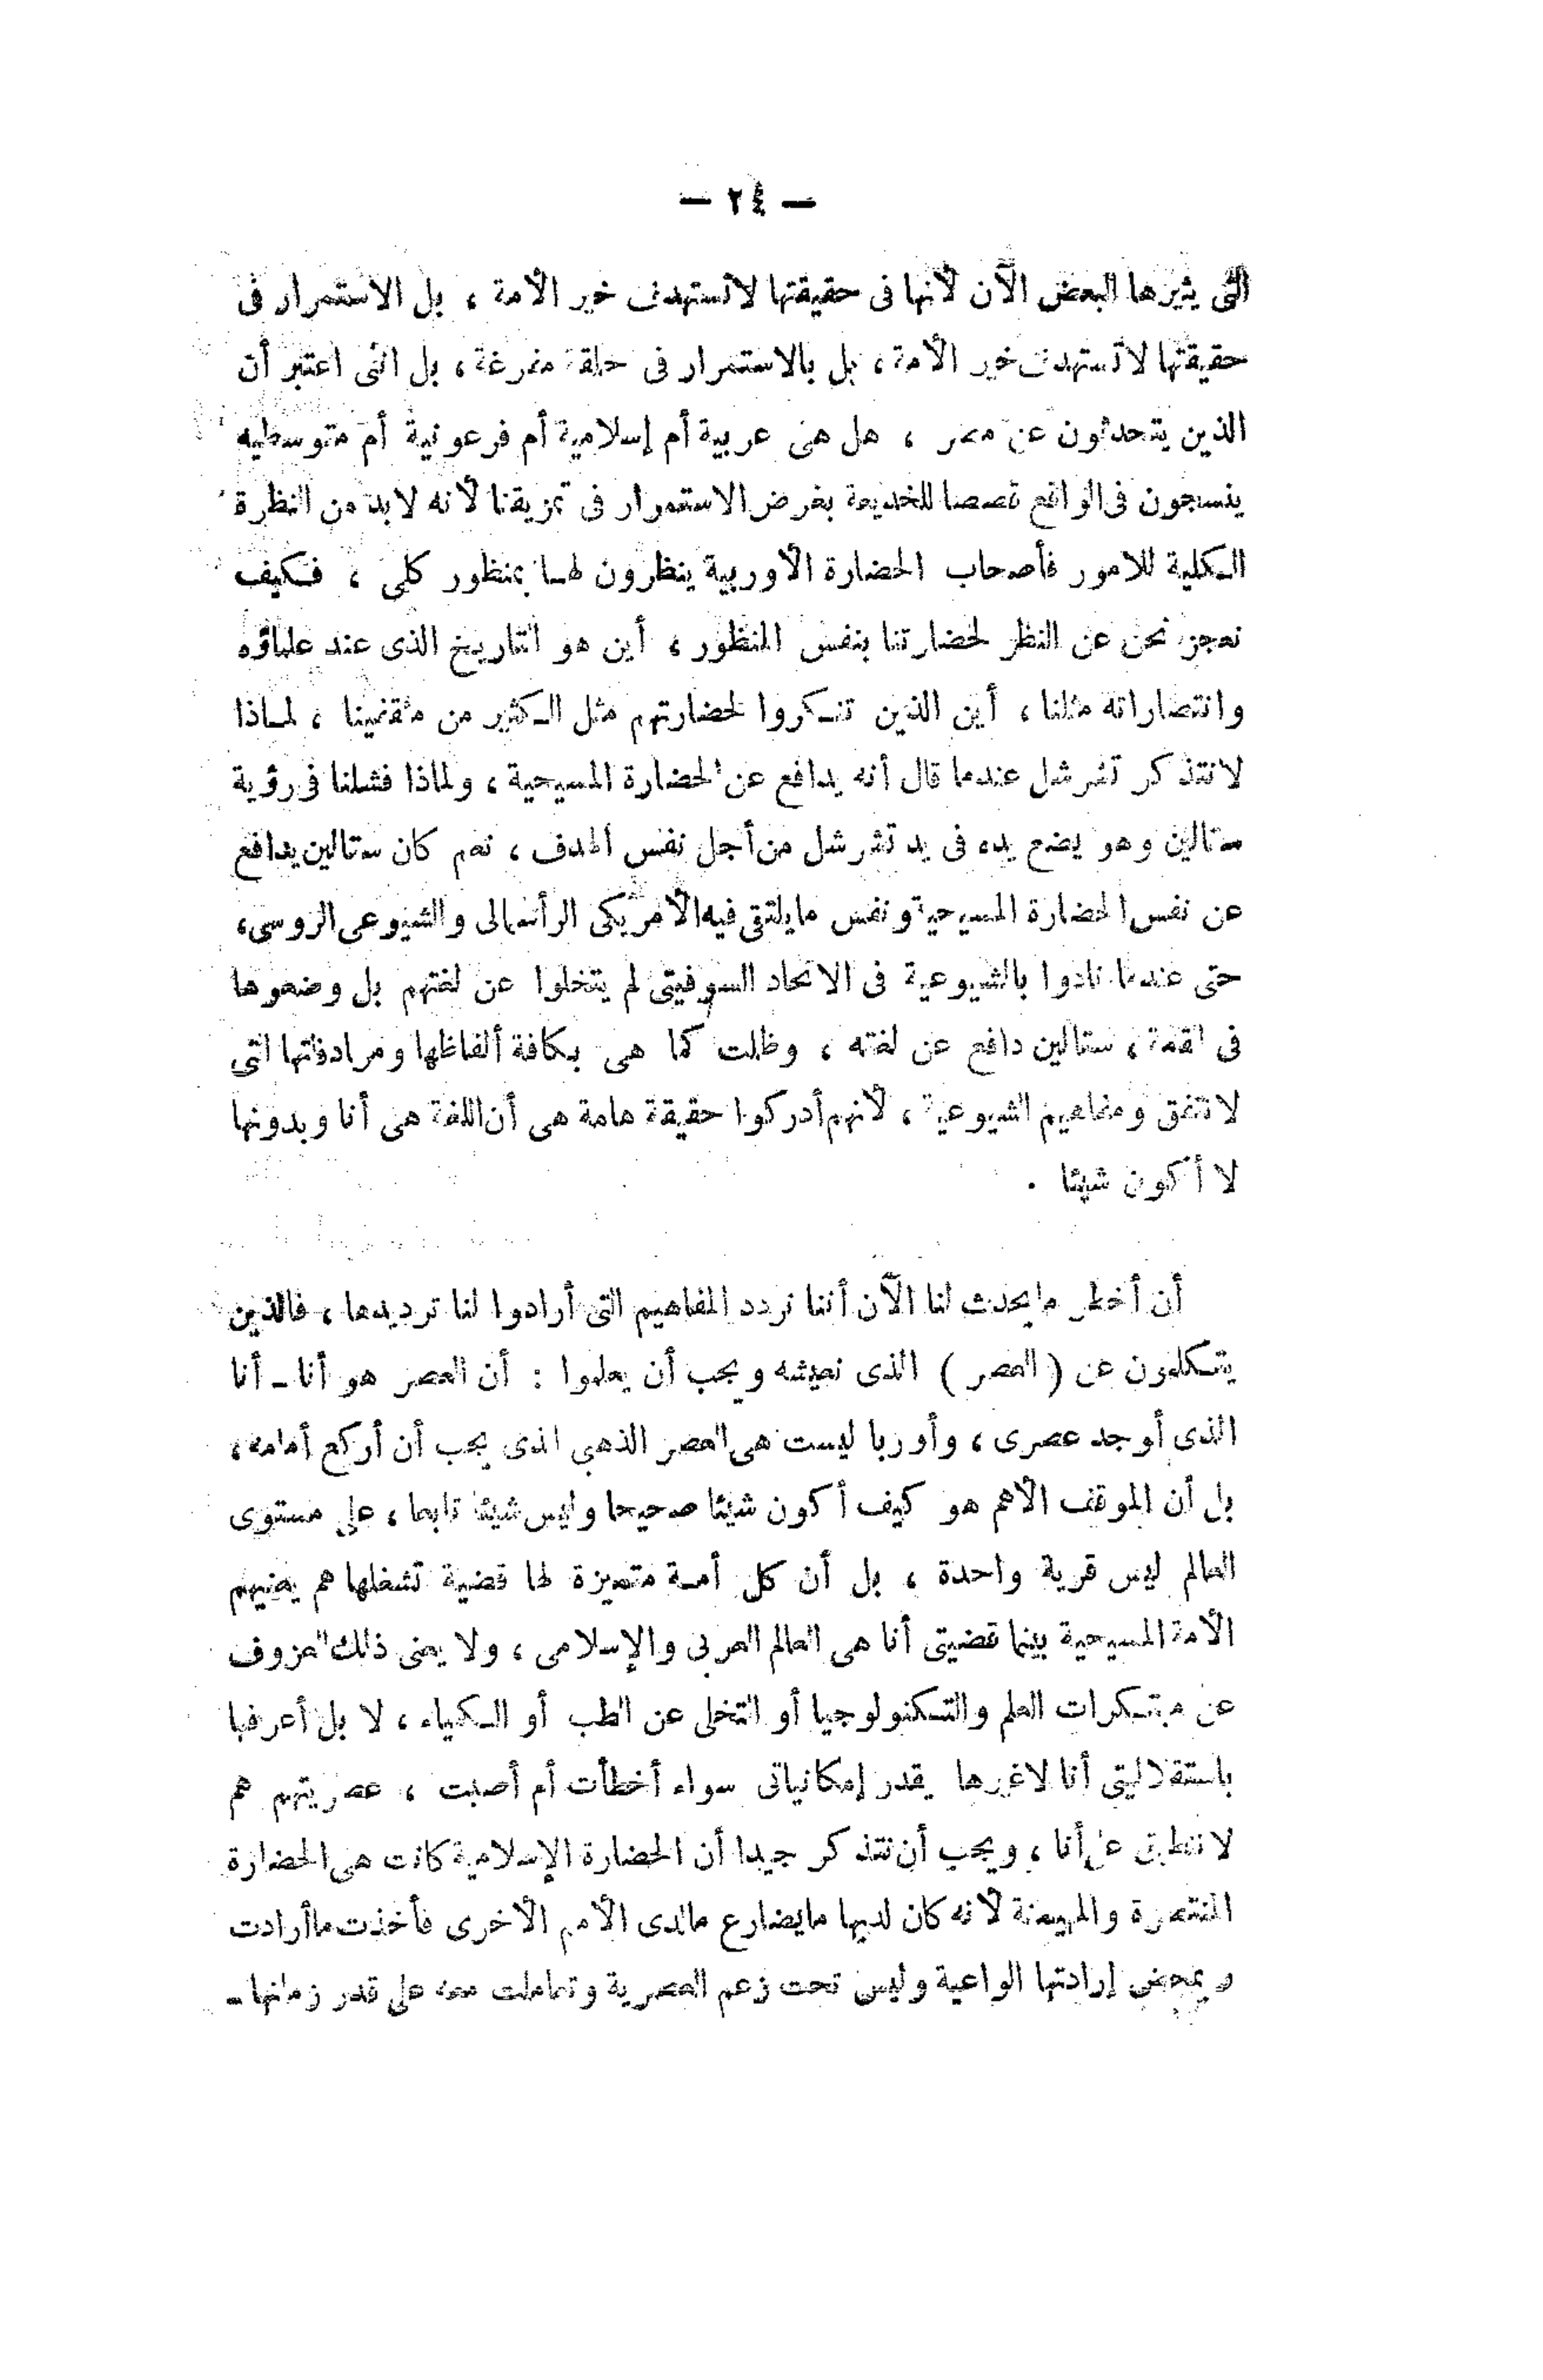 — ٢٤ —
التى يثيرها البعض الآن لأنها فى حقيقتها لاتستهدف خير الأمة ، بل الاستمرار فى
حقيقتها لاتستهدف خير الأمة ، بل بالاستمرار فى حلقة مفرغة ، بل اننى اعتبر أن
الذين يتحدثون عن مصر ، هل هى عربية أم إسلامية أم فرعونية أم متوسطيه
ينسجون فى الواقع قصصا للخديعة بغرض الاستمرار فى تمزيقنا لأنه لابد من النظرة
الكلية للامور فأصحاب الحضارة الأوربية ينظرون لها بمنظور كلى ، فكيف
نعجز نحن عن النظر لحضارتنا بنفس المنظور ، أين هو التاريخ الذى عند علماؤه
وانتصاراته مثلنا ، أين الذين تنكروا لحضارتهم مثل الكثير من مثقفينا ، لماذا
لانتذكر تشرشل عندما قال أنه يدافع عن الحضارة المسيحية ، ولماذا فشلنا فى رؤية
ستالين وهو يضع يده فى يد تشرشل من أجل نفس الهدف ، نعم كان ستالين يدافع
عن نفس الحضارة المسيحية ونفس مايلتقى فيه الأمريكى الرأسمالى والشيوعى الروسى،
حتى عندما نادوا بالشيوعية فى الاتحاد السوفيتى لم يتخلوا عن لغتهم بل وضعوها
فى القمة ، ستالين دافع عن لغته ، وظلت كما هى بكافة ألفاظها ومرادفاتها التى
لاتتفق ومفاهيم الشيوعية ، لأنهم أدركوا حقيقة هامة هى أن اللغة هى أنا وبدونها
لا أكون شيئا .
أن أخطر مايحدث لنا الآن أننا نردد المفاهيم التى أرادوا لنا ترديدها ، فالذين
يتكلمون عن ( العصر ) الذى نعيشه ويجب أن يعلموا : أن العصر هو أنا ـ أنا
الذى أوجد عصرى ، وأوربا ليست هى العصر الذهبى الذى يجب أن أركع أمامه ،
بل أن الموقف الأهم هو كيف أكون شيئا صحيحا وليس شيئا تابعا ، على مستوى
العالم ليس قرية واحدة ، بل أن كل أمة متميزة لها قضية تشغلها هم يعنيهم
الأمة المسيحية بينما قضيتى أنا هى العالم العربى والإسلامى ، ولا يعنى ذلك العزوف
عن مبتكرات العلم والتكنولوجيا أو التخلى عن الطب أو الكمياء ، لا بل أعرفها
باستقلاليتى أنا لاغيرها بقدر إمكانياتى سواء أخطأت أم أصبت ، عصريتهم هم
لاتنطبق على أنا ، ويجب أن نتذكر جيدا أن الحضارة الإسلامية كانت هى الحضارة
المنتصرة والمهيمنة لأنه كان لديها مايضارع مالدى الأمم الأخرى فأخذت ماأرادت
وبمحض إرادتها الواعية وليس تحت زعم العصرية وتعاملت معه على قدر زمانها ـ